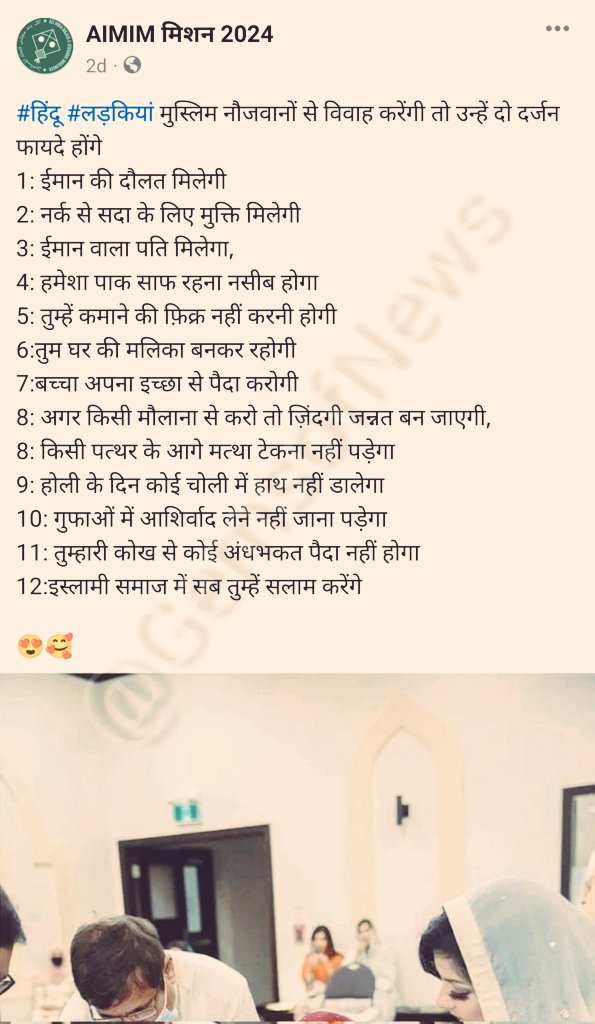 AIMIM मिशन 2024
2d
#हिंदू #लड़कियां मुस्लिम नौजवानों से विवाह करेंगी तो उन्हें दो दर्जन
फायदे होंगे
1: ईमान की दौलत मिलेगी
2: नर्क से सदा के लिए मुक्ति मिलेगी
3: ईमान वाला पति मिलेगा,
4: हमेशा पाक साफ रहना नसीब होगा
5: तुम्हें कमाने की फ़िक्र नहीं करनी होगी
6:तुम घर की मलिका बनकर रहोगी
7:बच्चा अपना इच्छा से पैदा करोगी
8: अगर किसी मौलाना से करो तो ज़िंदगी जन्नत बन जाएगी,
8: किसी पत्थर के आगे मत्था टेकना नहीं पड़ेगा
9: होली के दिन कोई चोली में हाथ नहीं डालेगा
10: गुफाओं में आशिर्वाद लेने नहीं जाना पड़ेगा
11: तुम्हारी कोख से कोई अंधभकत पैदा नहीं होगा
12:इस्लामी समाज में सब तुम्हें सलाम करेंगे